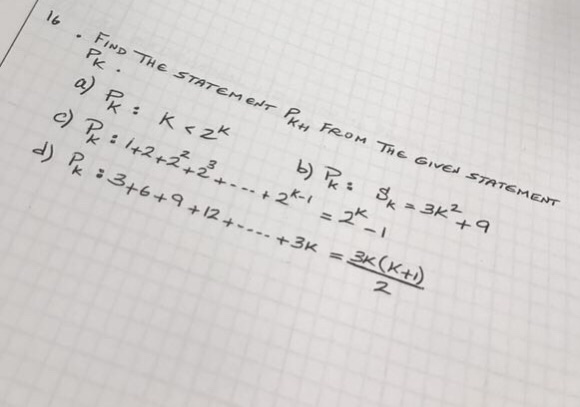 16. FIND THE STATEMENT P_{K+1} FROM THE GIVEN STATEMENT
P_K.
a) P_K : K < 2^K
b) P_K : S_K = 3K^2 + 9
c) P_K : 1+2+2^2+2^3+...+2^{K-1} = 2^K - 1
d) P_K : 3+6+9+12+....+3K = \frac{3K(K+1)}{2}